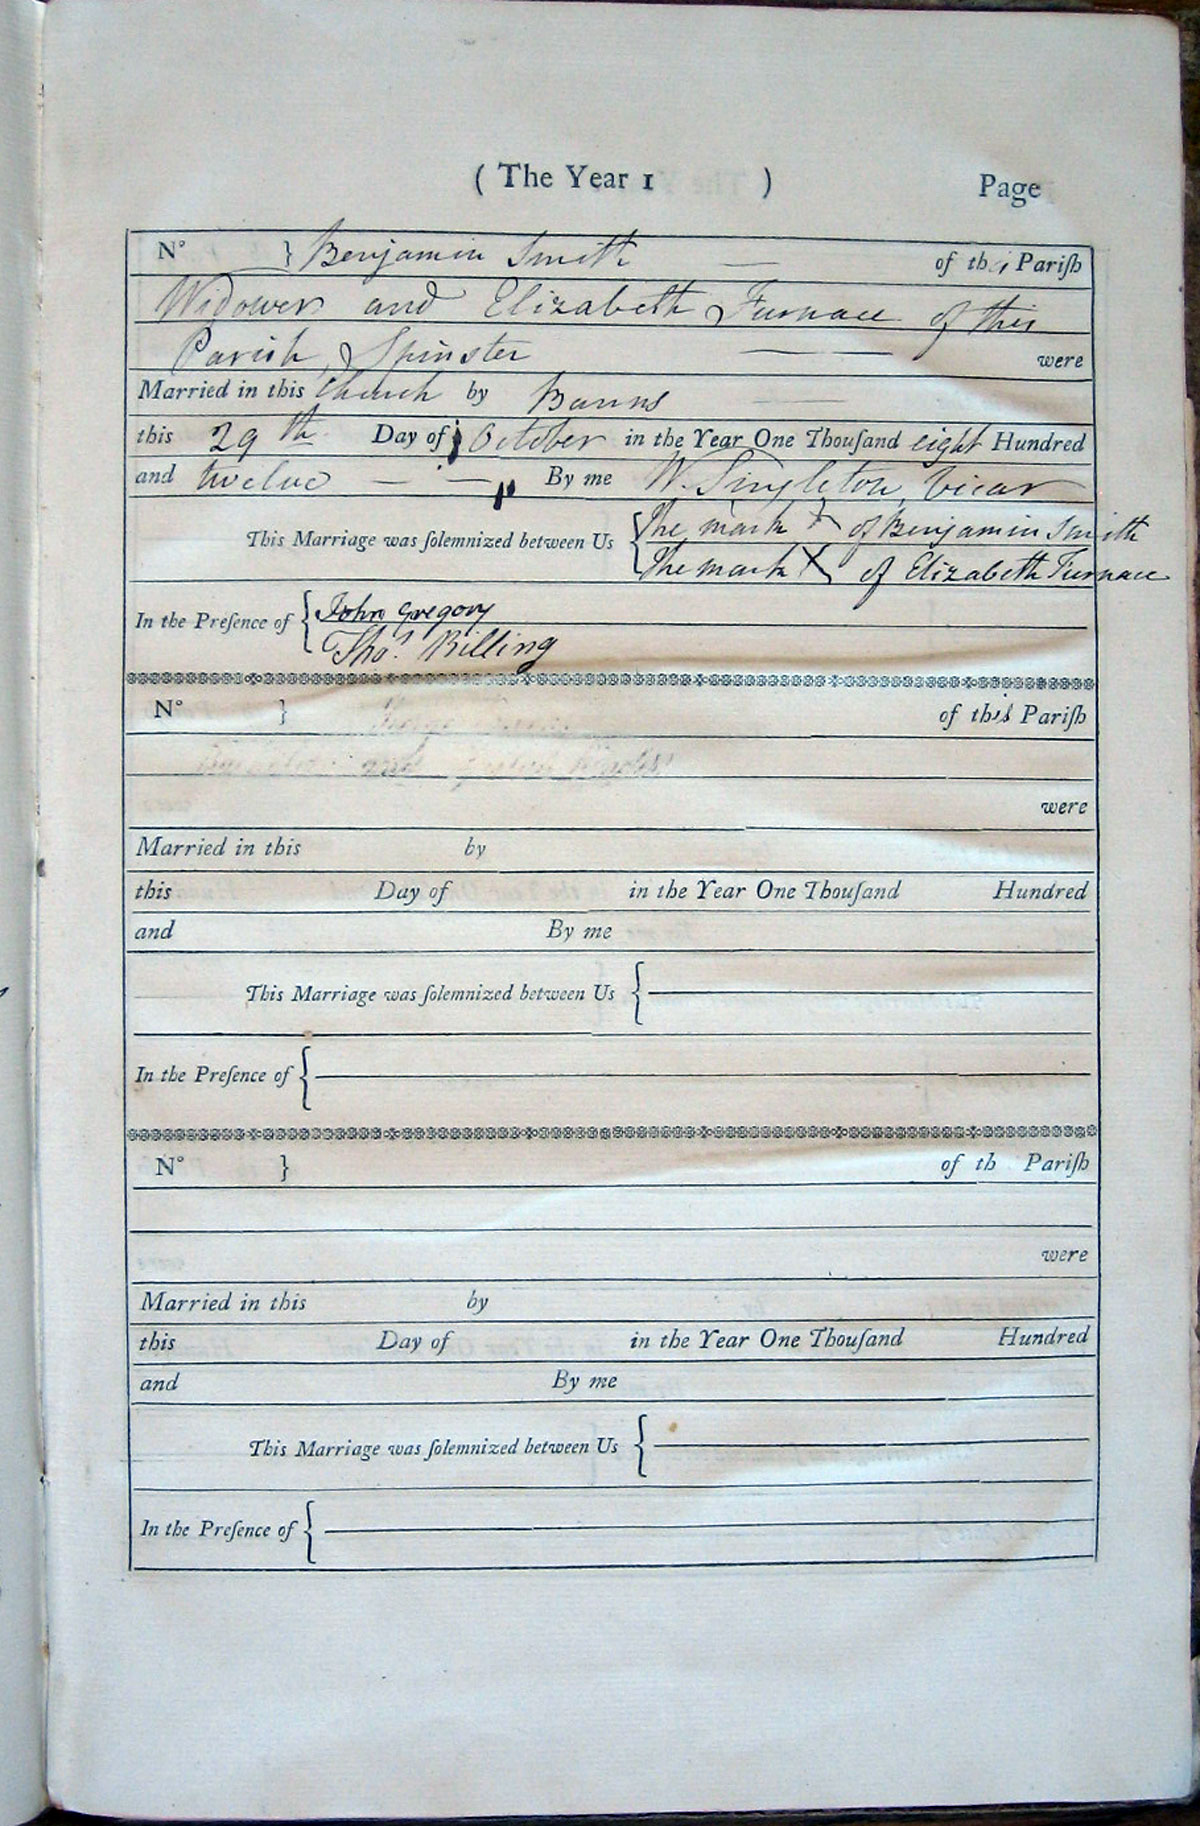 ( The Year 1 ) Page
N° } Benjamin Smith — of this Pariſh
Widower and Elizabeth Furnace of this
Parish, Spinster — were
Married in this Church by Banns —
this 29th Day of October in the Year One Thouſand eight Hundred
and twelve — — By me W. Singleton, Vicar
This Marriage was ſolemnized between Us { The mark X of Benjamin Smith
The mark X of Elizabeth Furnace
In the Preſence of { John Gregory
Thos. Billing
N° } of this Pariſh
and
were
Married in this by
this Day of in the Year One Thouſand Hundred
and By me
This Marriage was ſolemnized between Us {
In the Preſence of {
N° } of th Pariſh
were
Married in this by
this Day of in the Year One Thouſand Hundred
and By me
This Marriage was ſolemnized between Us {
In the Preſence of {